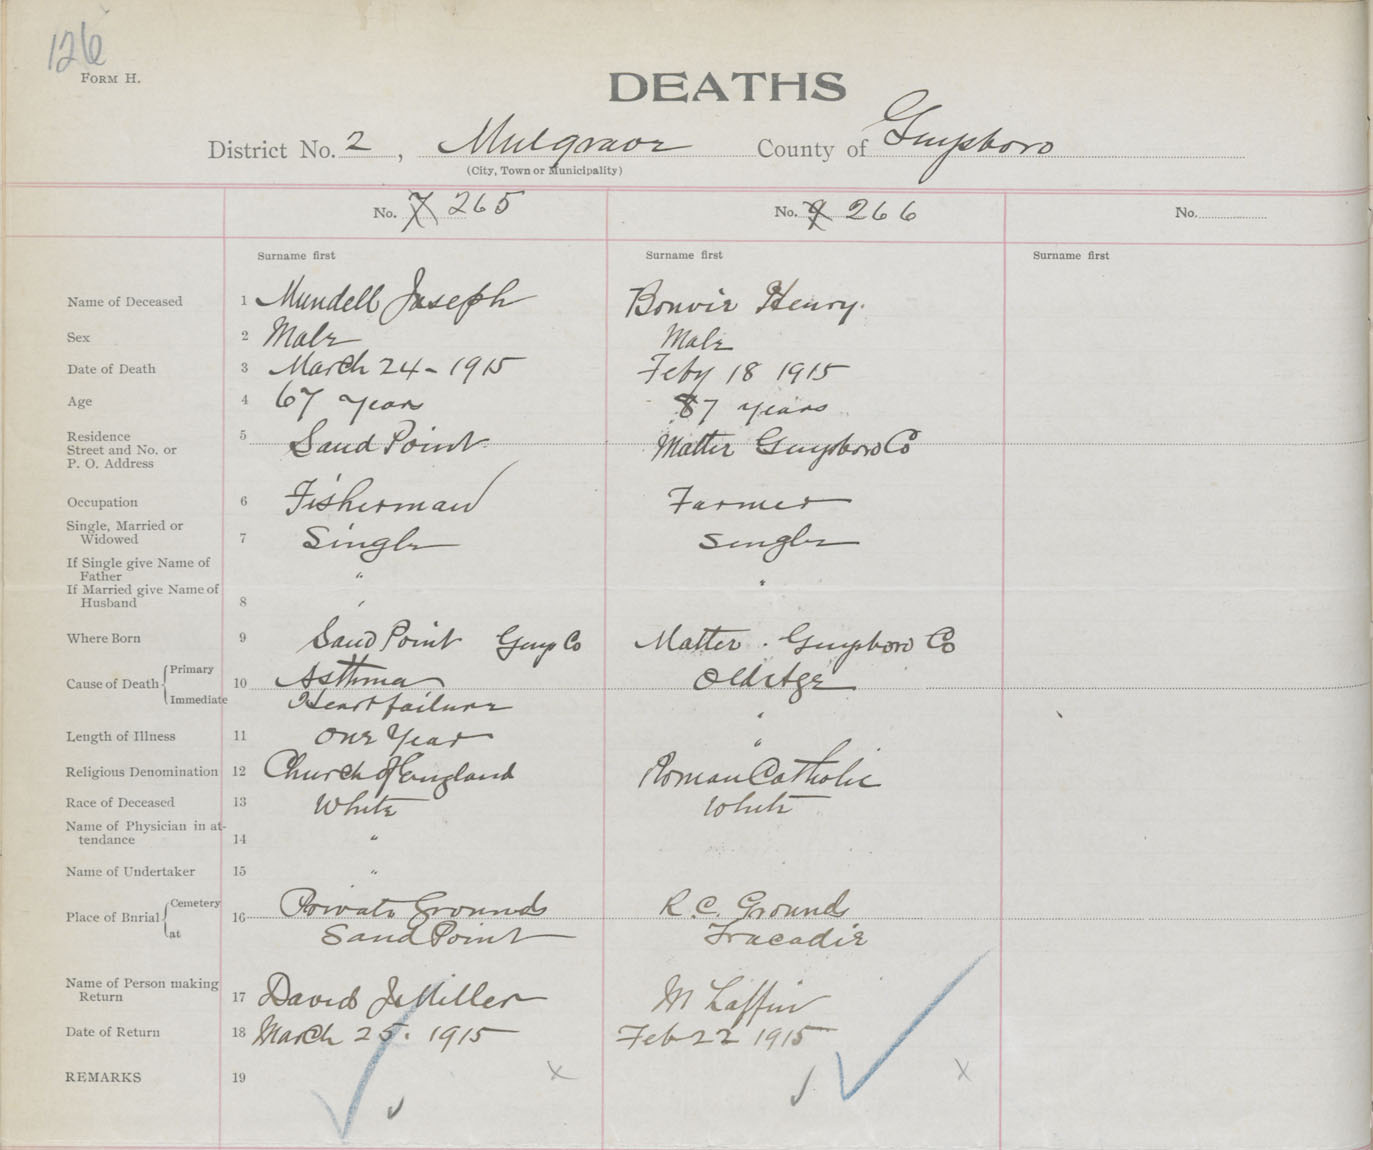 126
FORM H.
DEATHS
District No. 2, Mulgrave County of Guysboro
(City, Town or Municipality)
No. 7 265 No. 9 266 No.
Surname first Surname first Surname first
Name of Deceased 1 Mundell Joseph Bonvie Henry.
Sex 2 Male Male
Date of Death 3 March 24 - 1915 Feby 18 1915
Age 4 67 years 87 years
Residence 5 Sand Point Matter Guysboro Co
Street and No. or
P. O. Address
Occupation 6 Fisherman Farmer
Single, Married or
Widowed 7 Single Single
If Single give Name of
Father " "
If Married give Name of
Husband 8 "
Where Born 9 Sand Point Guys Co Matter. Guysboro Co
Cause of Death Primary 10 Asthma Old Age
Immediate Heart failure "
Length of Illness 11 One Year "
Religious Denomination 12 Church of England Roman Catholic
Race of Deceased 13 White White
Name of Physician in at-
tendance 14 "
Name of Undertaker 15 "
Place of Burial Cemetery 16 Private Grounds R.C. Grounds
at Sand Point Tracadie
Name of Person making
Return 17 David J. Miller M Laffin
Date of Return 18 March 25. 1915 Feb 22 1915
REMARKS 19 x x